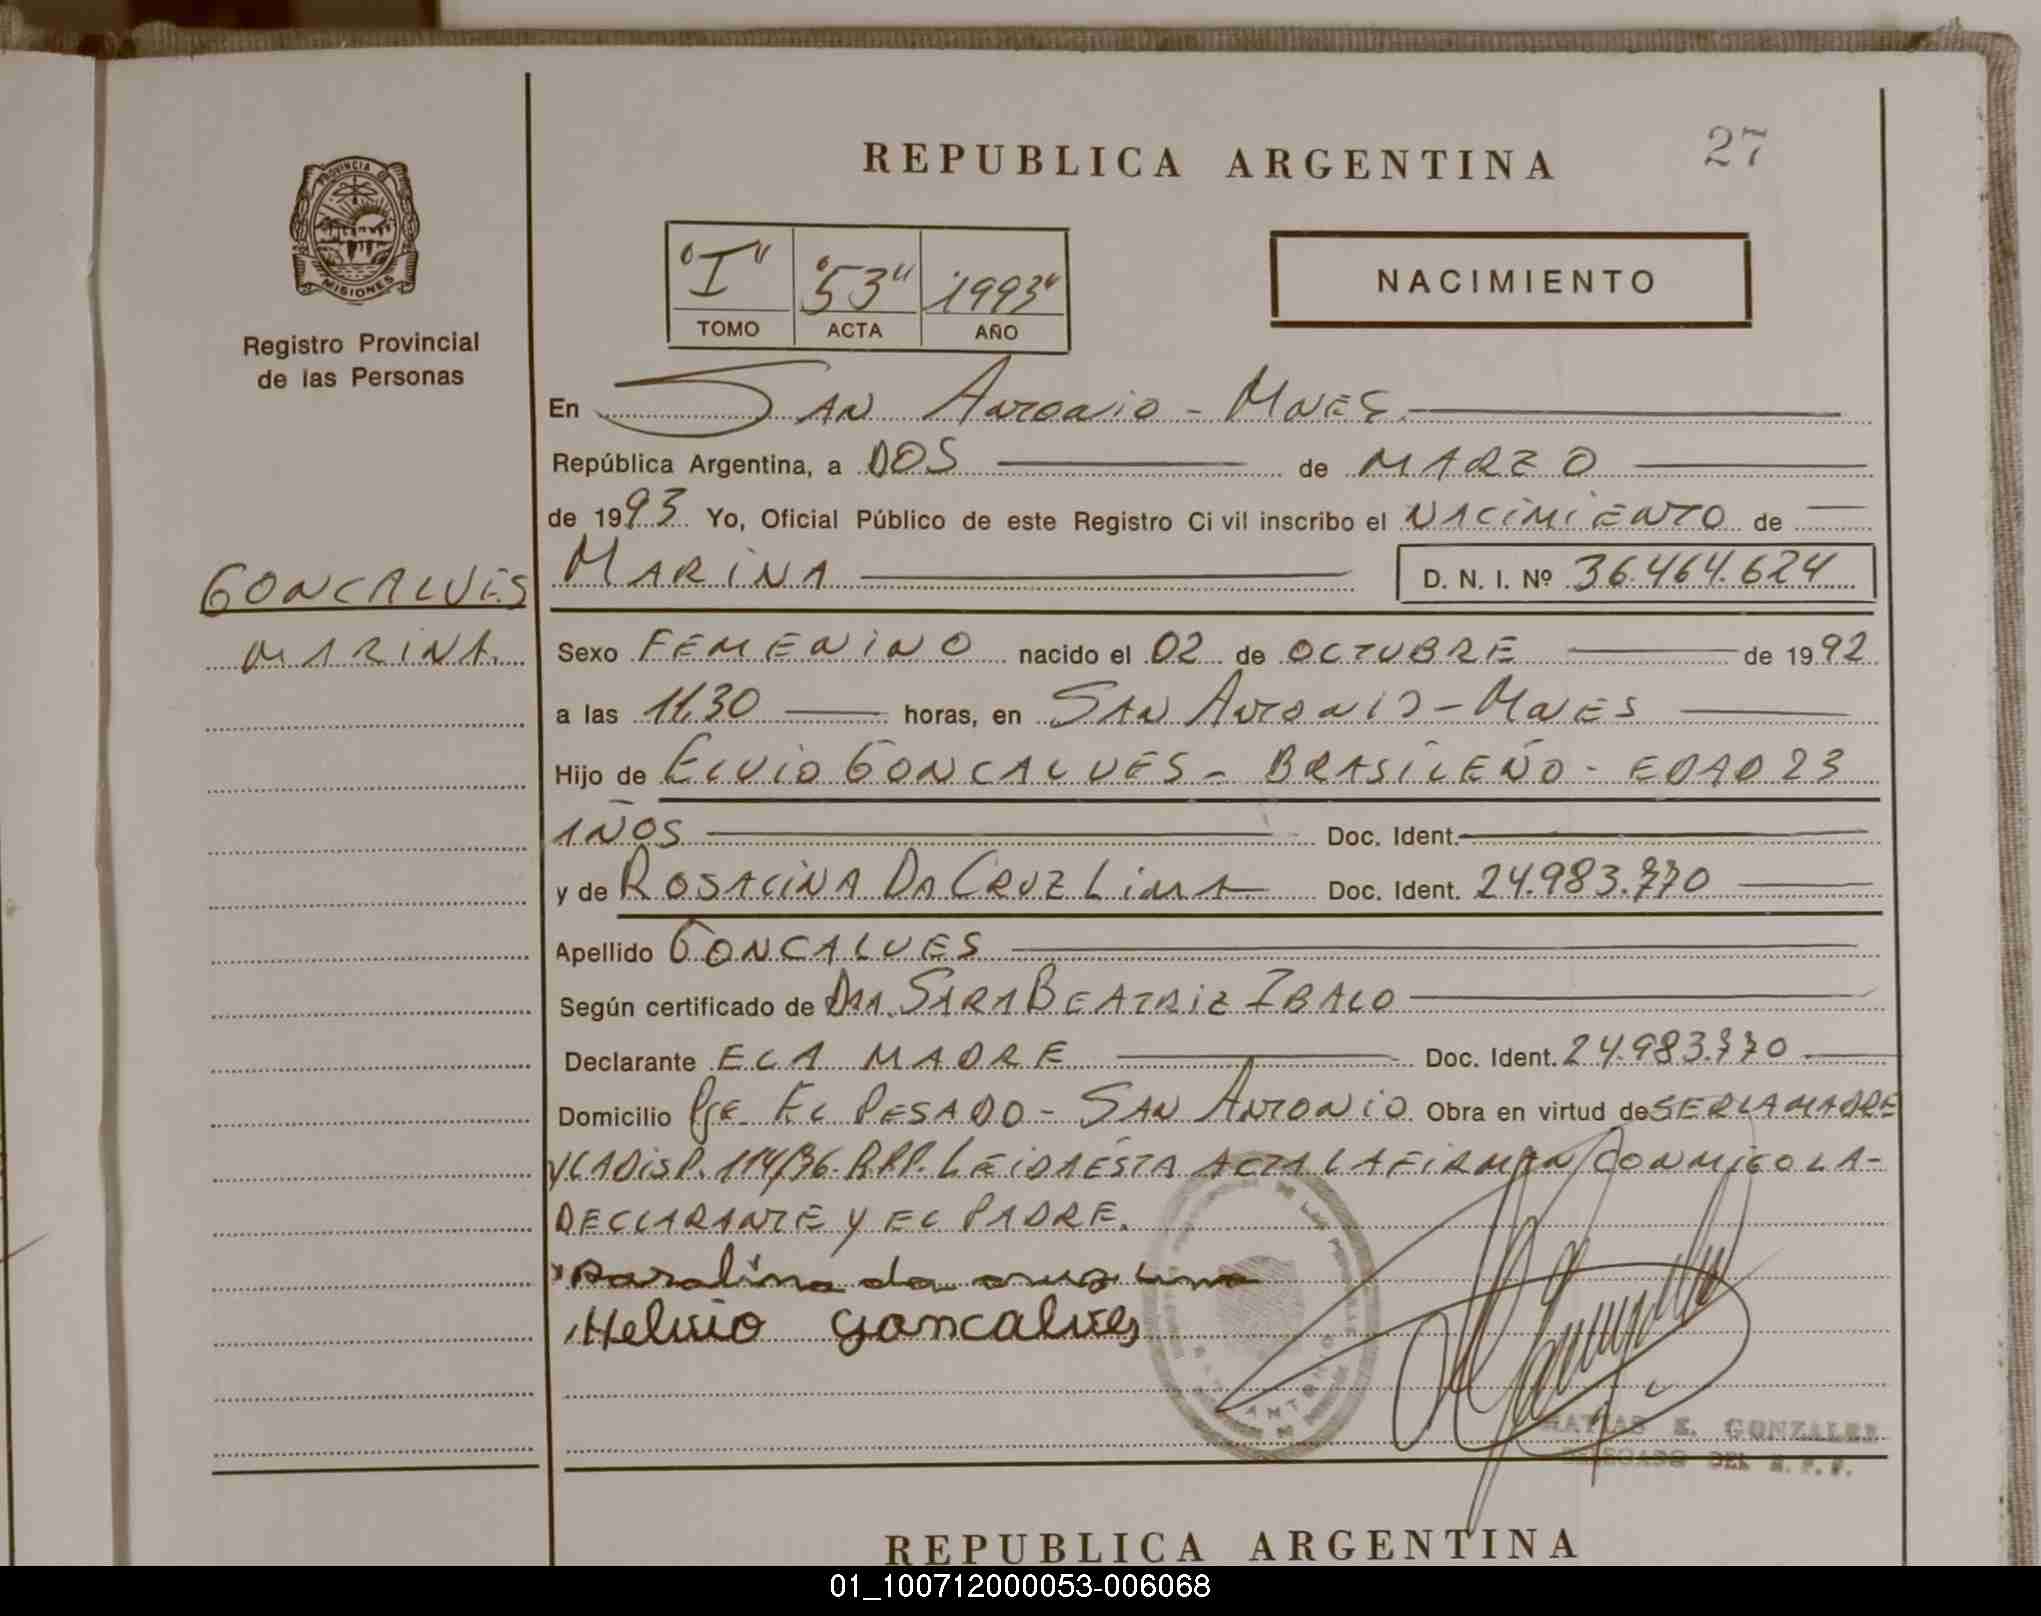 27
REPUBLICA ARGENTINA
PROVINCIA DE
MISIONES
Registro Provincial
de las Personas
"I" "53" "1993"
TOMO ACTA AÑO
NACIMIENTO
En SAN ANTONIO - MNES
República Argentina, a DOS de MARZO
de 1993 Yo, Oficial Público de este Registro Ci vil inscribo el NACIMIENTO de
GONCALVES
MARINA
MARINA D. N. I. Nº 36.464.624
Sexo FEMENINO nacido el 02 de OCTUBRE de 1992
a las 11,30 horas, en SAN ANTONIO - MNES
Hijo de ELVIO GONCALVES - BRASILEÑO - EDAD 23
AÑOS Doc. Ident.
y de ROSALINA DA CRUZ LIMA Doc. Ident. 24.983.770
Apellido GONCALVES
Según certificado de DRA. SARA BEATRIZ IBALO
Declarante LA MADRE Doc. Ident. 24.983.770
Domicilio PJE EL PESADO - SAN ANTONIO Obra en virtud de SER LA MADRE
Y LA DISP. 114/86. R.P.P. LEIDA ESTA ACTA LA FIRMAN CONMIGO LA-
DECLARANTE Y EL PADRE.
da cruz lima
Helvio goncalves
E. GONZALEZ
DEL R. P. P.
REPUBLICA ARGENTINA
01_100712000053-006068